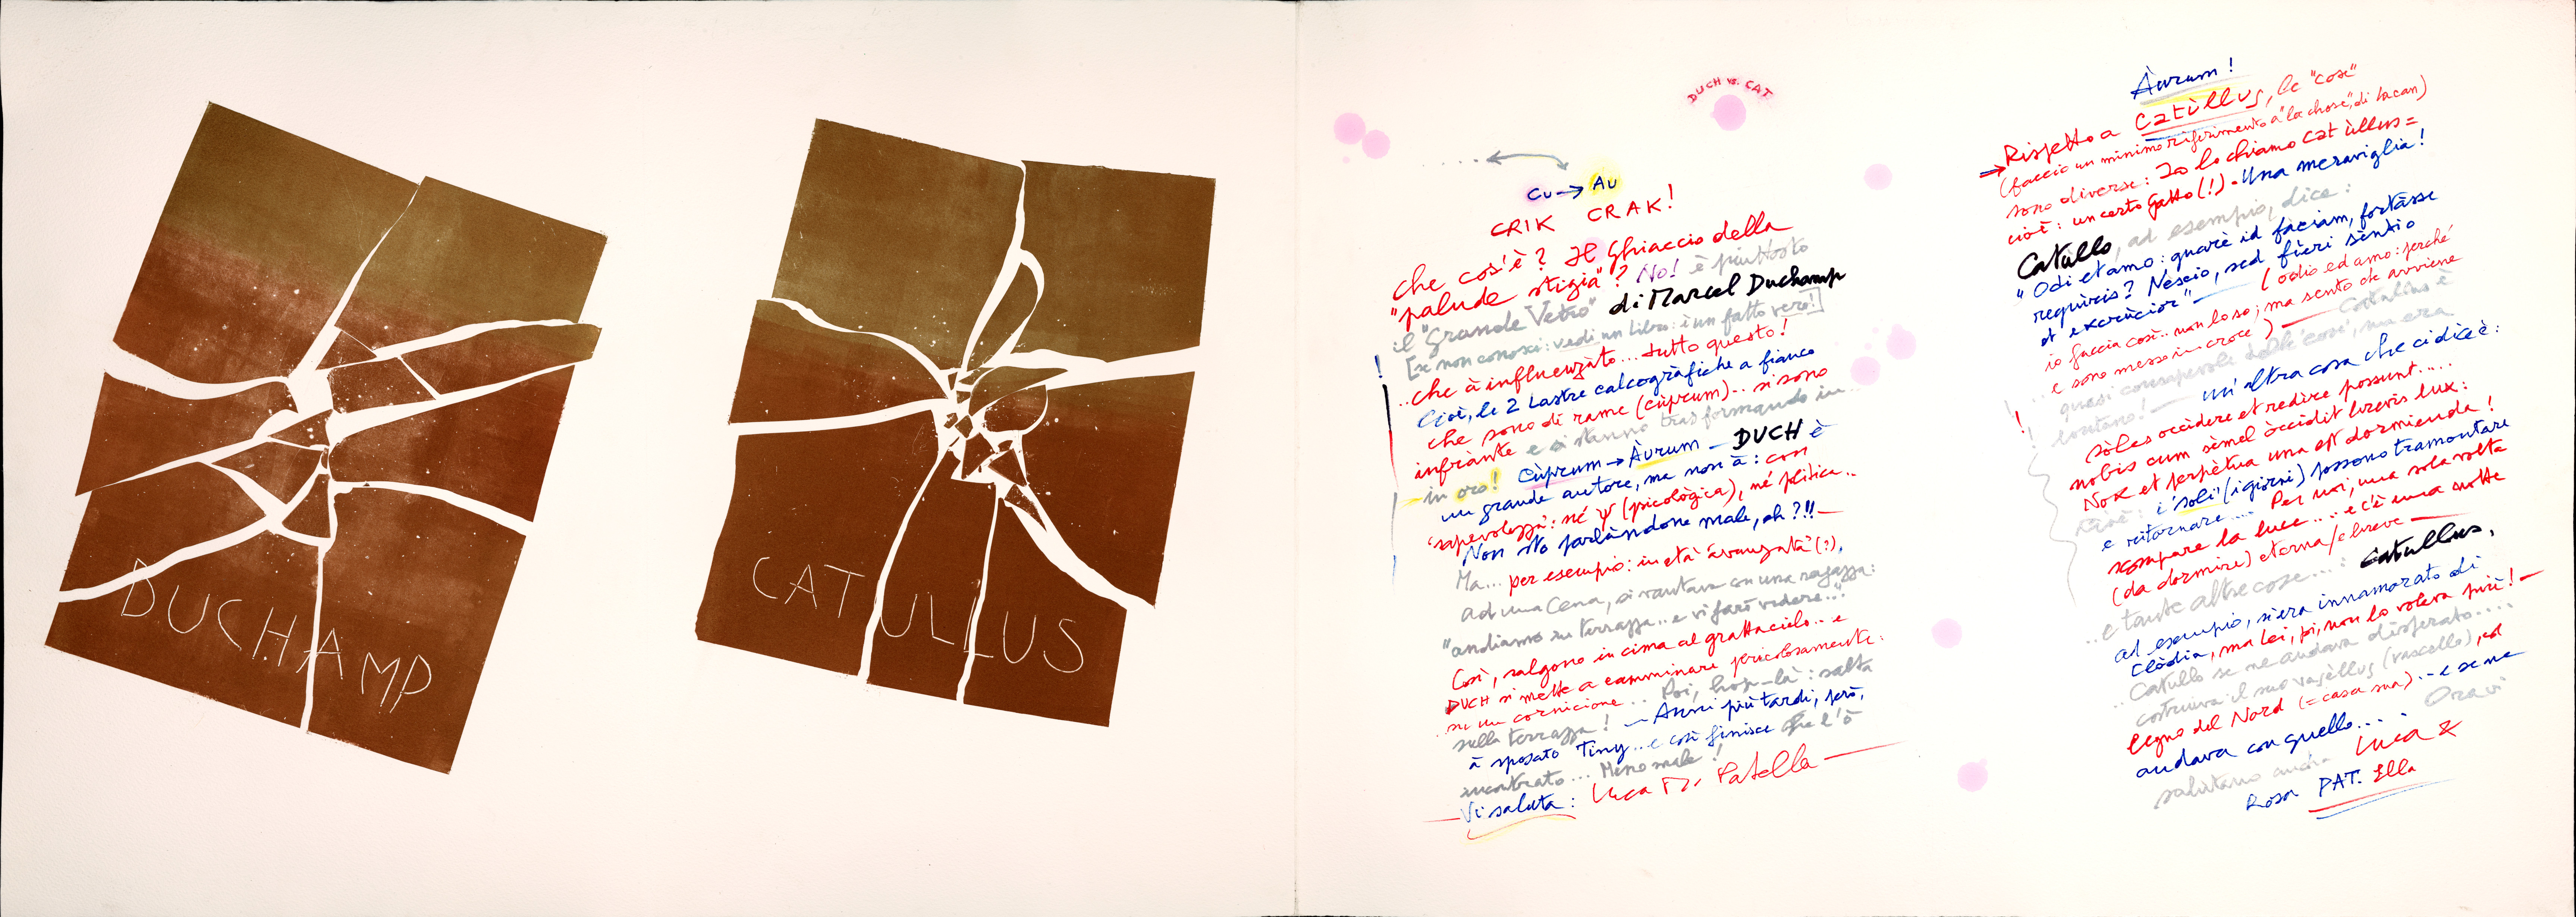 DUCHAMP
CATULLUS
DUCH vs. CAT
Cu → Au
CRIK CRAK!
che cos'è? Il Ghiaccio della
"palude stigia"? No! è piuttosto
il "Grande Vetro" di Marcel Duchamp
[se non conosci: vedi un libro: è un fatto vero!]
..che à influenzàto... tutto questo!
Cioè, le 2 Lastre calcogràfiche a fianco
che sono di rame (cùprum).. si sono
infrànte e si stanno trasformando in..
– in oro! Cùprum → Àurum – DUCH è
un grande autore, ma non à: con
'sapevolezza': né Ψ (psicològica), né politica..
Non sto parlàndone male, eh?!! –
Ma... per esempio: in età 'avanzàta' (?),
ad una Cena, si vantava con una ragazza:
"andiamo su terrazza.. e vi farò vedere..."
Così, salgono in cima al grattacielo.. e
DUCH si mette a camminare pericolosamente
su un cornicione... Poi, hop-là: salta
sulla terrazza! – Anni più tardi, però,
à sposato Tiny.. e così finisce che l'ò
incontrato... Meno male!
Vi saluta: Luca M. Patella –
Àurum!
→ Rispetto a Catùllus, le "cose"
(faccio un minimo riferimento a "la chose", di Lacan)
sono diverse: Io lo chiamo Cat ùllus =
cioè: un certo Gatto (!) - Una meraviglia!
Catullo, ad esempio, dice:
"Odi et amo: quarè id fàciam, fortàsse
requìris? Nescio, sed fìeri sèntio
et excrùcior" – (odio ed amo: perché
io faccia così.. non lo so; ma sento che avviene
e sono messo in croce) –
quasi consapevole delle 'cose', ma era
lontano! – un'altra cosa che ci dice è:
Sòles occìdere et redìre possunt.....
nobis cum sèmel òccidit brevis lux:
Nox est perpètua una est dormienda!
Cioè: i 'soli' (i giorni) possono tramontare
e ritornare.... Per noi, una sola volta
scompare la luce.... e c'è una notte
(da dormire) eterna/e breve –
..e tante altre cose...: Catullus,
ad esempio, si era innamorato di
Clòdia, ma lei, poi, non lo voleva più! –
Catullo se ne andava disperato....
..costruiva il suo vasèllus (vascello), col
legno del Nord (= casa sua)... e se ne
andava con quello.... Ora vi
salutano anche Luca &
Rosa PAT. Ella